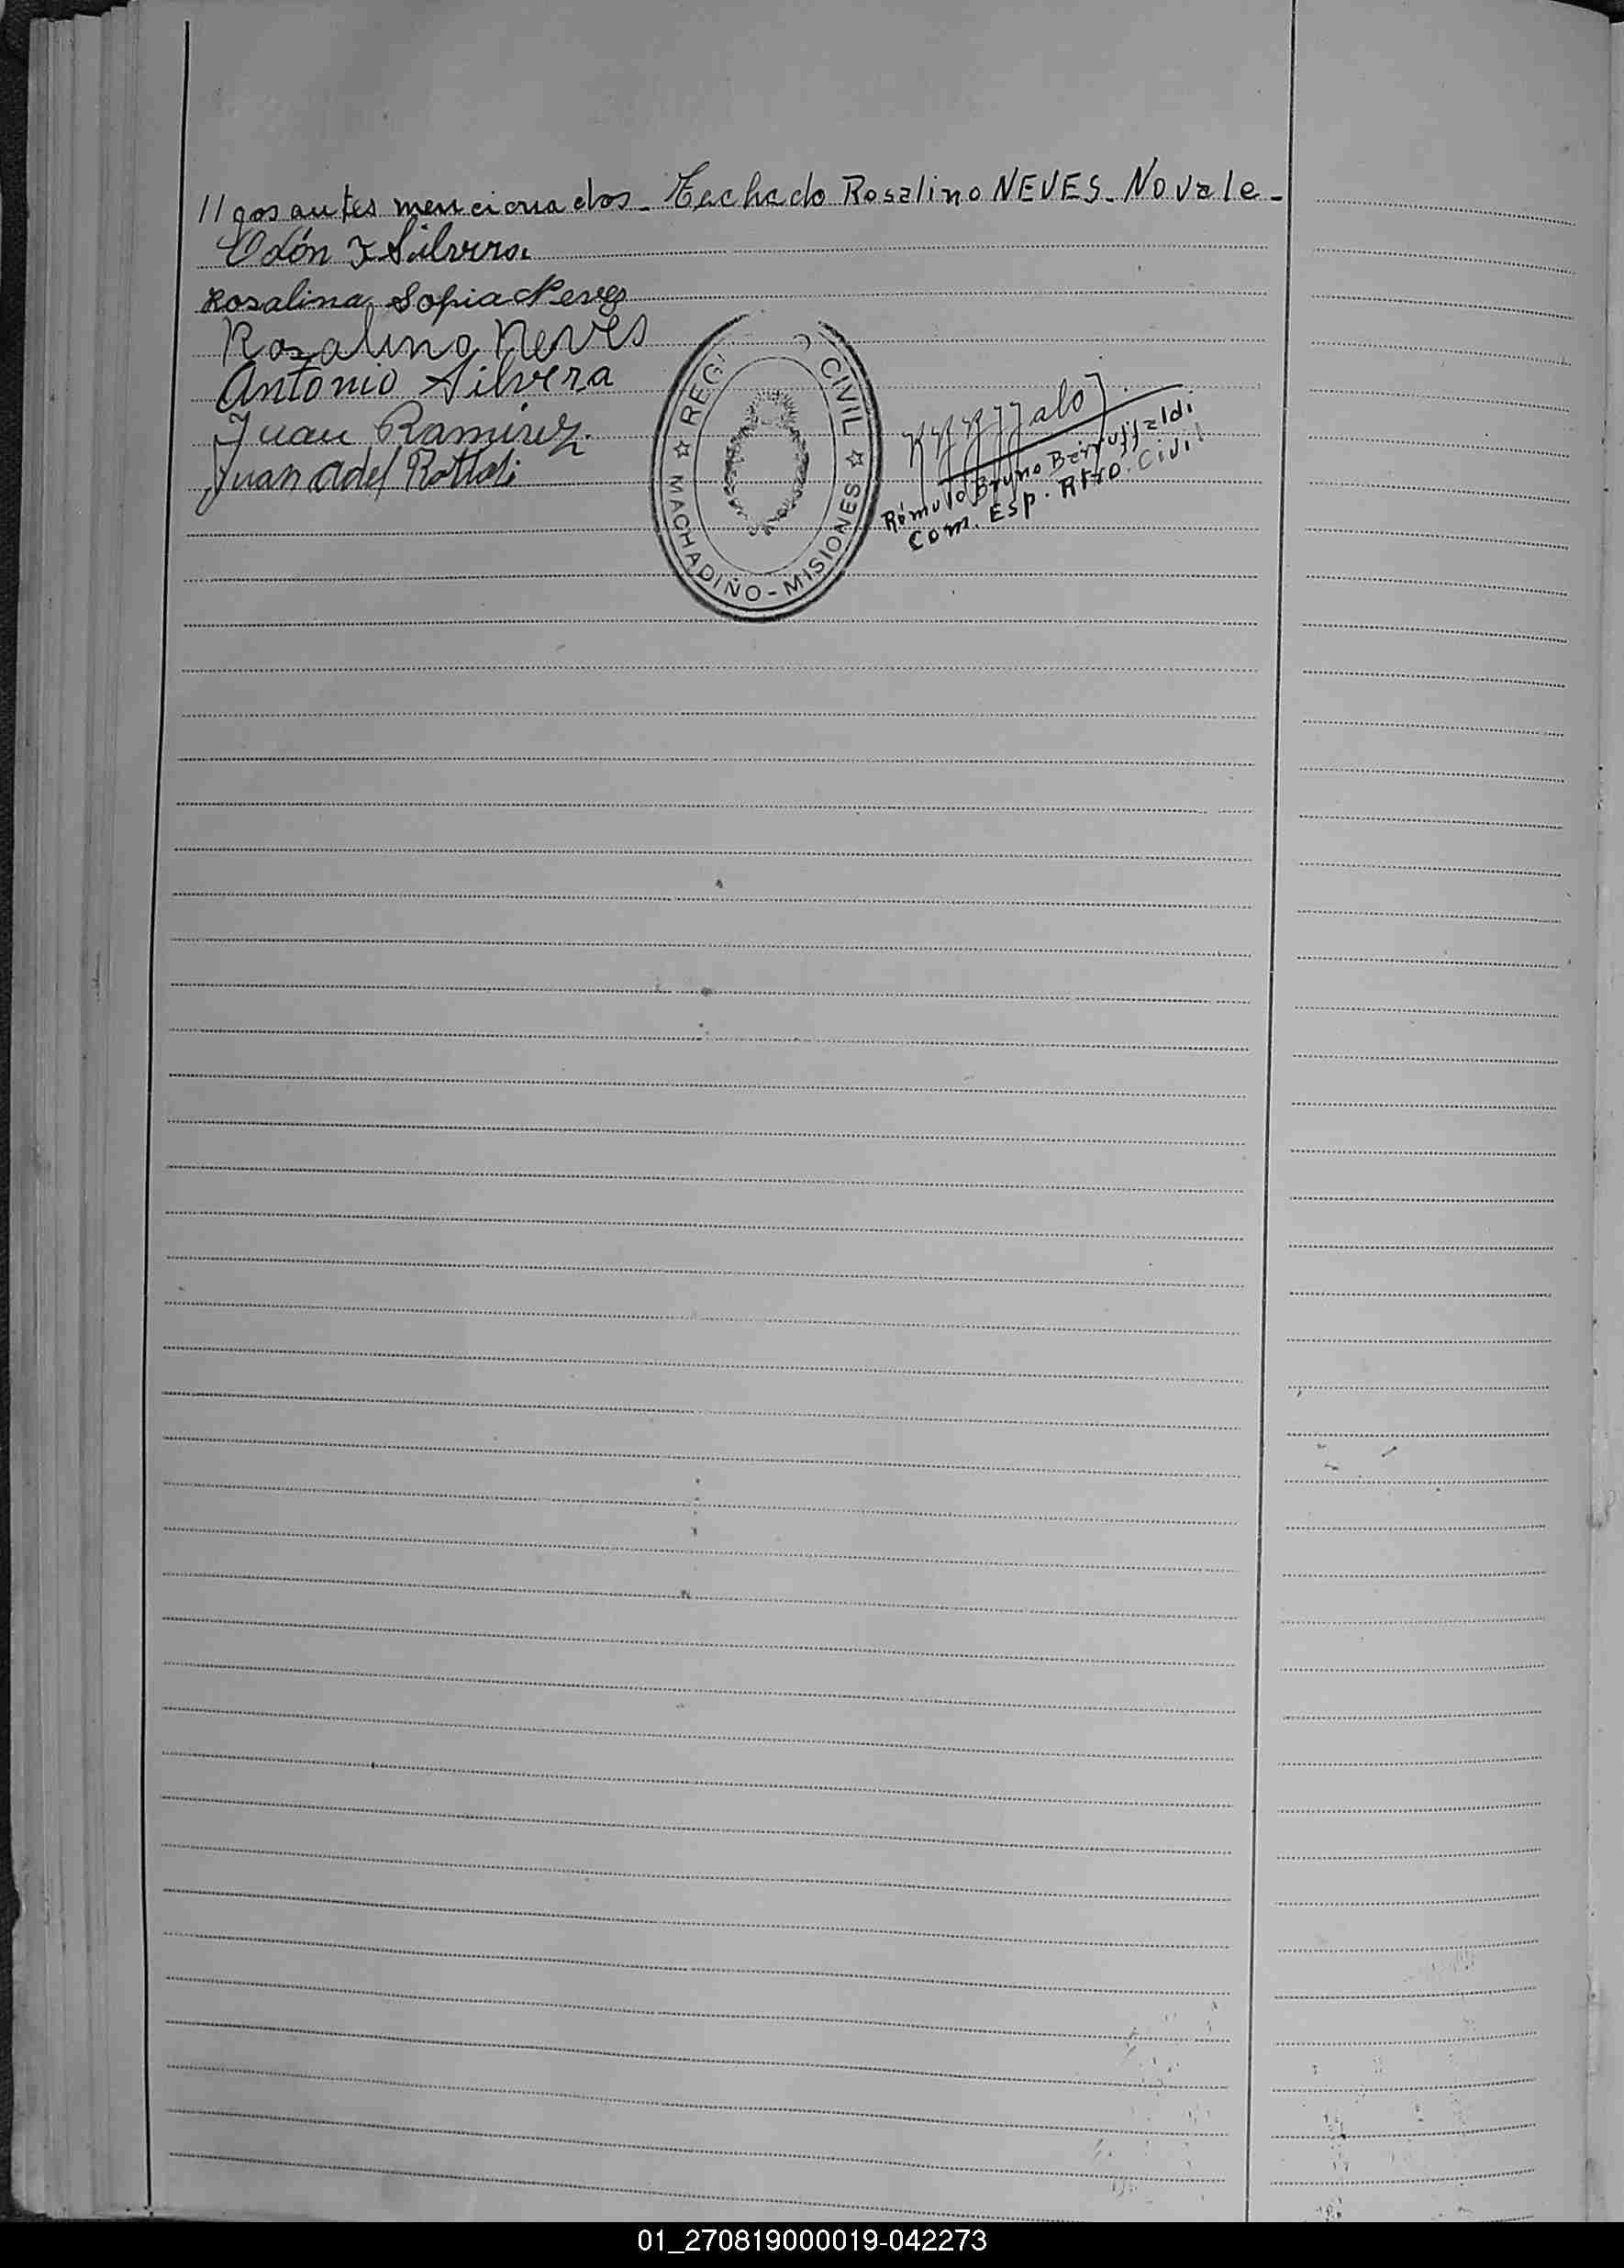 //gos antes mencionados - Techado Rosalino NEVES - No vale -
Odón I Silvera
Rosalina Sofia Neves
Rosalino Neves
Antonio Silvera
Juan Ramirez.
Juan Adel
REG. CIVIL
MACHADIÑO - MISIONES
Rómulo Bruno Berruffaldi
Com. Esp. Rtro. Civil
01_270819000019-042273